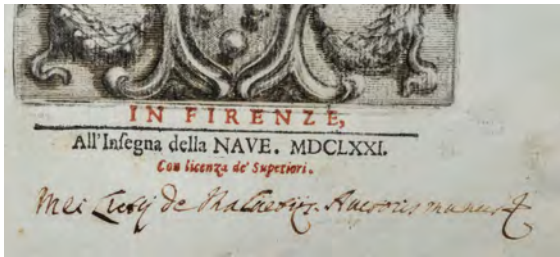 IN FIRENZE,
All'Insegna della NAVE. MDCLXXI.
Con licenza de' Superiori.
Mei de Auctoris munus